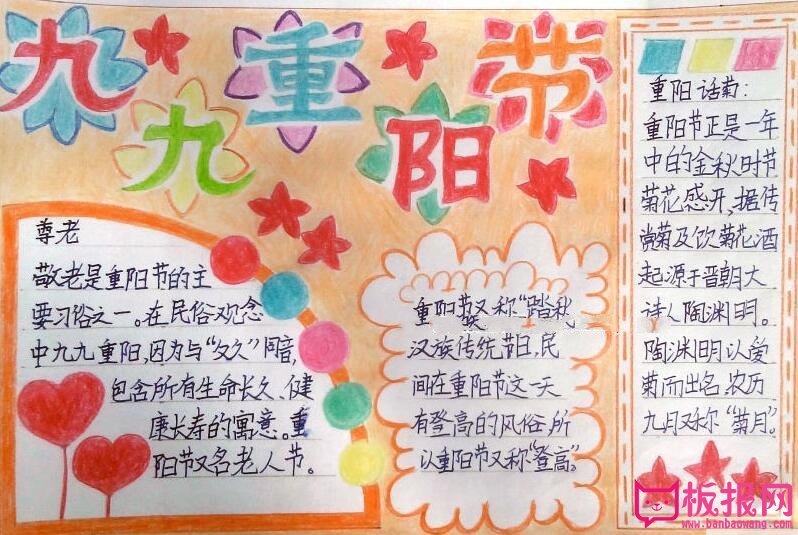 九九重阳带
尊老
敬老是重阳节的主
要习俗之一。在民俗观念
中九九重阳,因为与"久久"同音,
包含所有生命长久、健
康长寿的寓意。重
阳节又名老人节。
重阳节又称"踏秋
汉族传统节日,民
间在重阳节这一天
有登高的风俗,所
以重阳节又称"登高"。
重阳话菊:
重阳节正是一年
中的金秋时节
菊花盛开,据传
赏菊及饮菊花酒
起源于晋朝大
诗人陶渊明。
陶渊明以爱
菊而出名.农历
九月又称"菊月"。
板报网
www.banbaowang.com